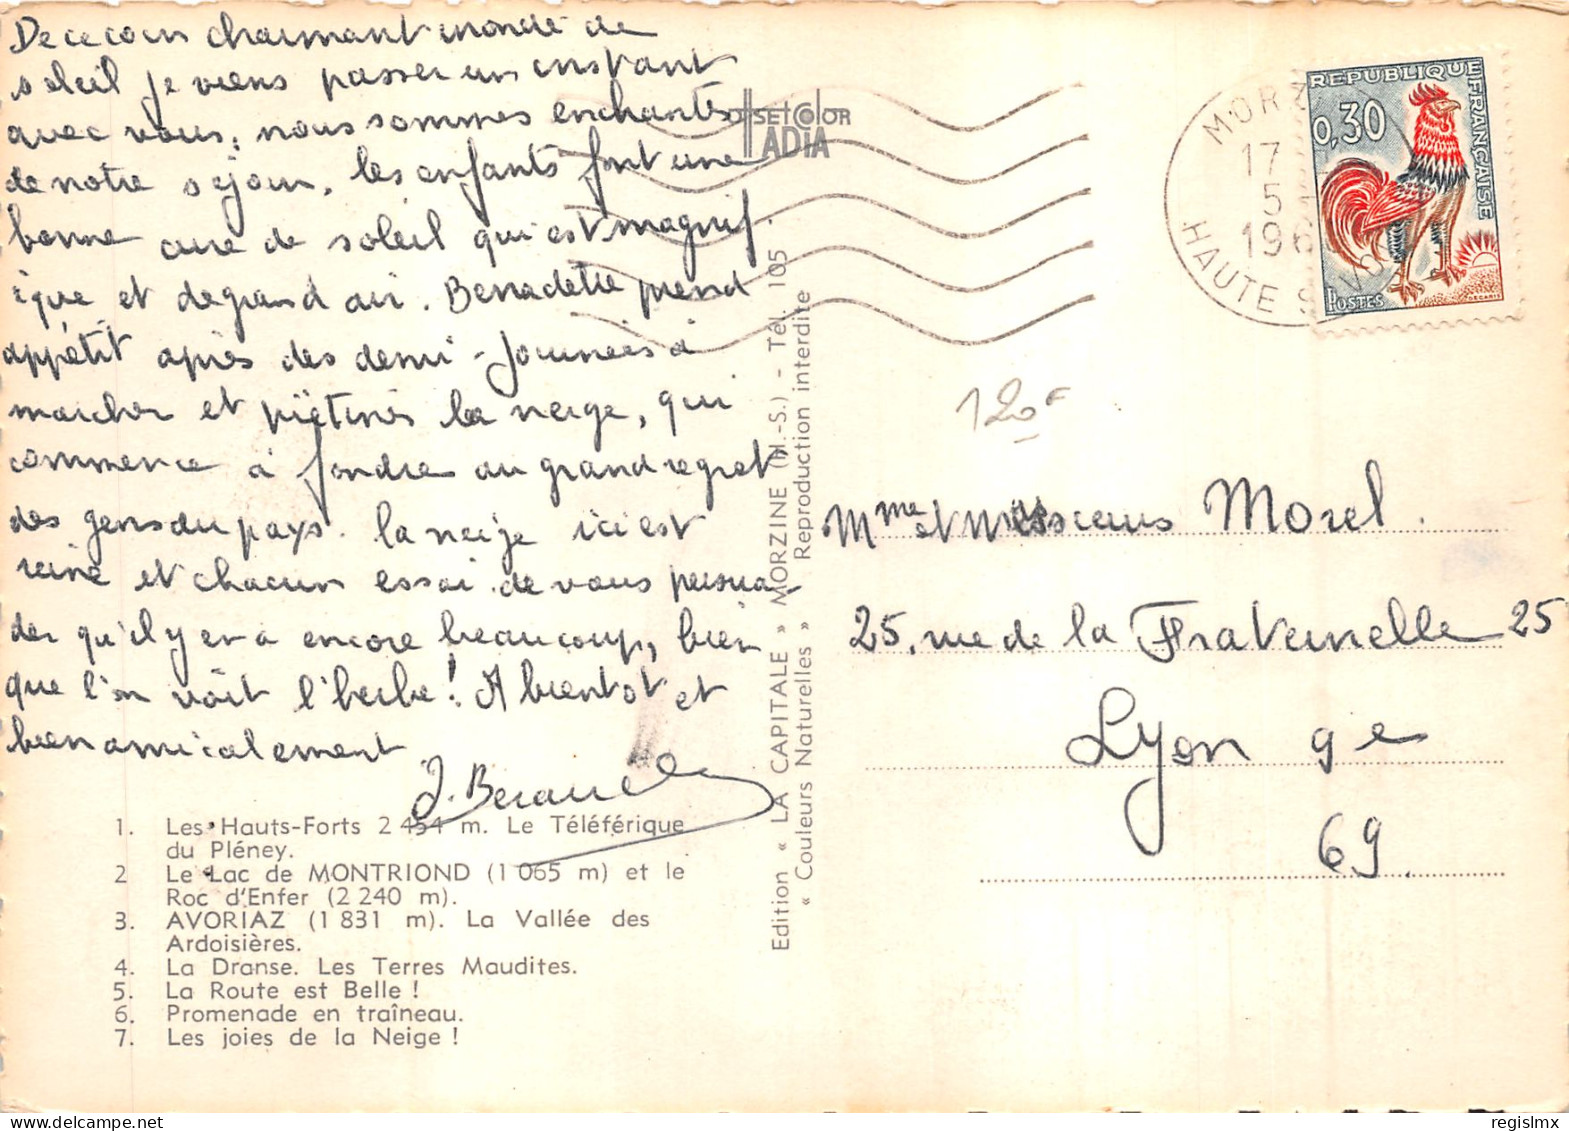 De ce coin charmant inondé de
soleil je viens passer un instant
avec vous; nous sommes enchantés
de notre séjour. Les enfants font une
bonne cure de soleil qui est magnif-
ique et de grand air. Bernadette prend
appétit après des demi-journées à
marcher et piétiner la neige, qui
commence à fondre au grand regret
des gens du pays. La neige ici est
reine et chacun essai de vous persua-
der qu'il y en a encore beaucoup, bien
que l'on voit l'herbe! A bientôt et
bien amicalement
1. Les Hauts-Forts 2 454 m. Le Téléférique
du Pléney.
2 Le Lac de MONTRIOND (1 065 m) et le
Roc d'Enfer (2 240 m).
3. AVORIAZ (1 831 m). La Vallée des
Ardoisières.
4. La Dranse. Les Terres Maudites.
5. La Route est Belle !
6. Promenade en traîneau.
7. Les joies de la Neige !
OffSET COlOR
IADIA
Edition « LA CAPITALE » MORZINE (H.-S.) - Tél. 105
« Couleurs Naturelles » Reproduction interdite
MORZ
17
5
196
HAUTE S
REPUBLIQUE FRANÇAISE
0,30
POSTES
DECARIS
120F
Mme et Messieurs Morel.
25, rue de la Fraternelle 25
Lyon 9e
69.
regislmx